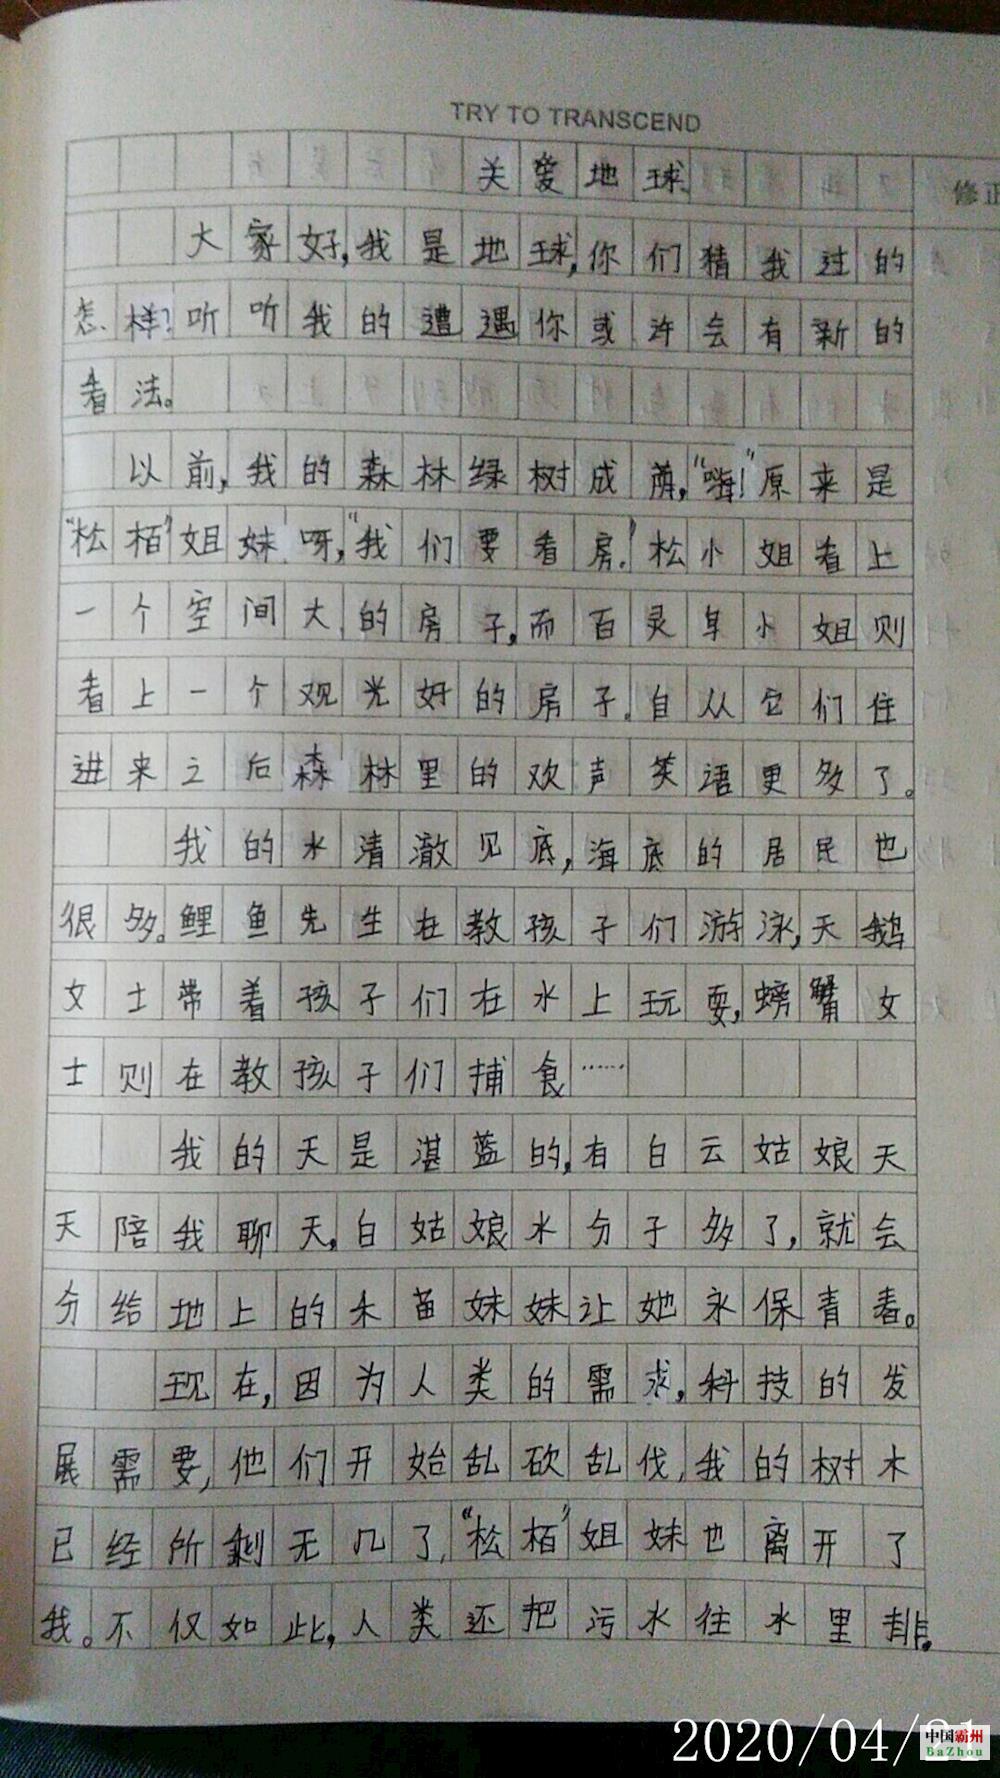 TRY TO TRANSCEND
关爱地球
修正
大家好,我是地球,你们猜我过的
怎样?听听我的遭遇你或许会有新的
看法。
以前,我的森林绿树成荫,“嗨!”原来是
“松栢”姐妹呀,“我们要看房!”松小姐看上
一个空间大的房子,而百灵鸟小姐则
看上一个观光好的房子.自从它们住
进来之后森林里的欢声笑语更多了。
我的水清澈见底,海底的居民也
很多。鲤鱼先生在教孩子们游泳,天鹅
女士带着孩子们在水上玩耍,螃蟹女
士则在教孩子们捕食……
我的天是湛蓝的,有白云姑娘天
天陪我聊天,白姑娘水分子多了,就会
分给地上的禾苗妹妹让她永保青春。
现在,因为人类的需求,科技的发
展需要,他们开始乱砍乱伐,我的树木
已经所剩无几了,“松栢”姐妹也离开了
我。不仅如此,人类还把污水往水里排,
2020/04/21
中国霸州
BaZhou